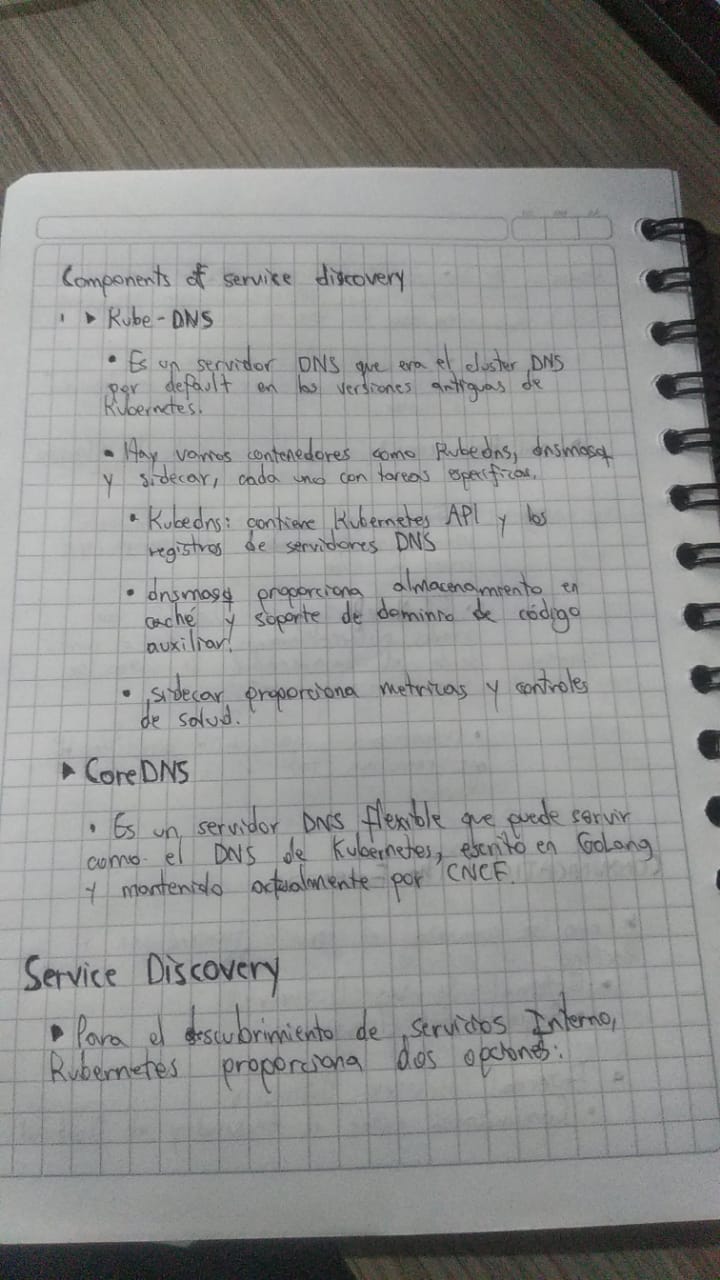 Components of service discovery
▸ Kube-DNS
• Es un servidor DNS que era el cluster DNS
por default en las versiones antiguas de
Kubernetes.
• Hay varios contenedores como Kubedns, dnsmasq
y sidecar, cada uno con tareas especificas.
• Kubedns: contiene Kubernetes API y los
registros de servidores DNS
• dnsmasq proporciona almacenamiento en
caché y soporte de dominio de código
auxiliar.
• sidecar proporciona metricas y controles
de salud.
▸ CoreDNS
• Es un servidor DNS flexible que puede servir
como el DNS de Kubernetes, escrito en GoLang
y mantenido actualmente por CNCF.
Service Discovery
▸ Para el descubrimiento de servicios Interno,
Kubernetes proporciona dos opciones: